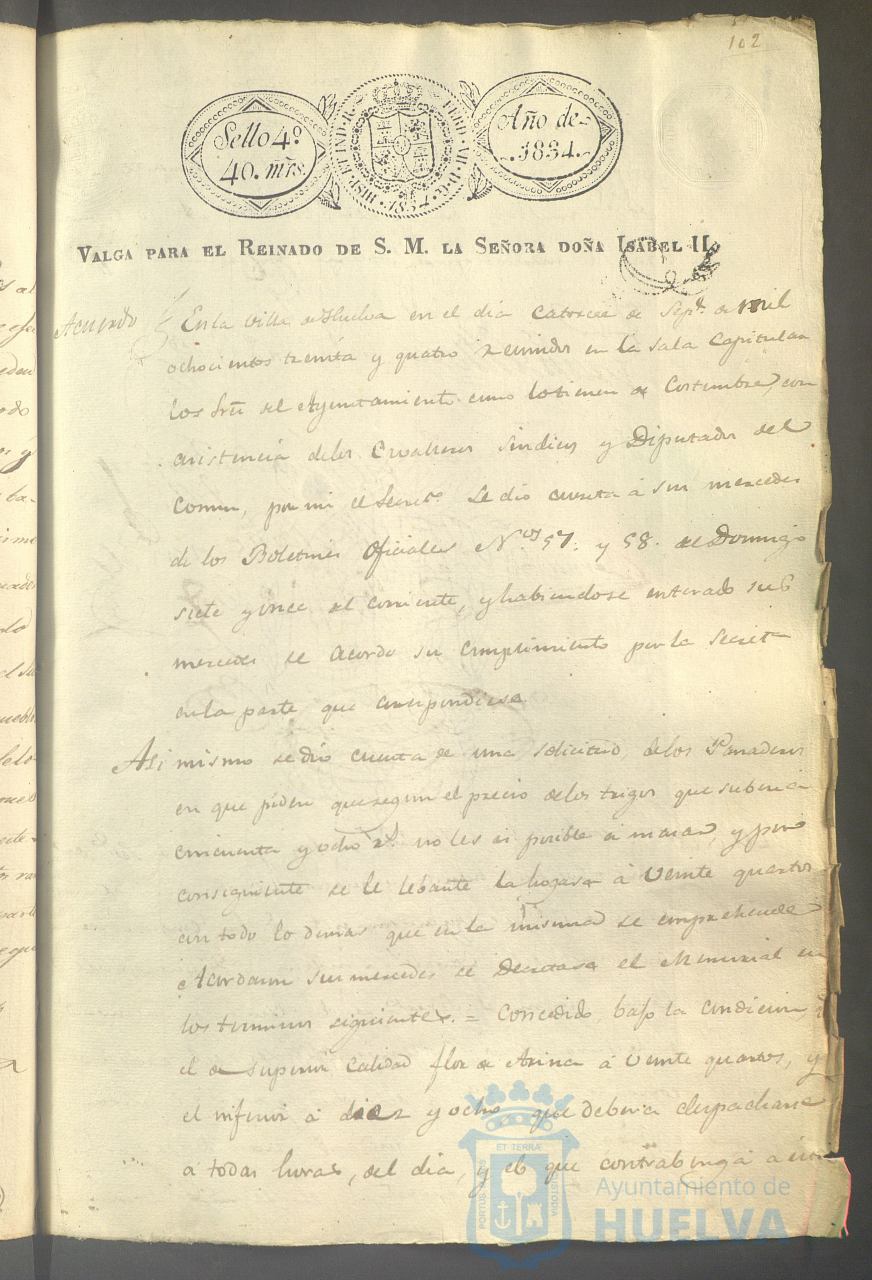 102
Sello 4º
40. mrs.
HISP. ET IND. R. FERD. VII. D. G. 1834
Año de
1834.
VALGA PARA EL REINADO DE S. M. LA SEÑORA DOÑA ISABEL II.
Acuerdo
En la Villa de Huelva en el dia Catorce de Sepe. de mil
ochocientos treinta y quatro reunidos en la sala Capitular
los Sres del Ayuntamiento como lo tienen de Costumbre, con
asistencia de los Cavalleros Sindicos y Diputados del
Comun, por mi el Secreto. Se dio cuenta á sus mercedes
de los Boletines Oficiales Nos 57. y 58. de Domingo
siete y once del corriente, y habiendose enterado sus
mercedes se acordo su cumplimiento por la Secreta
en la parte que correspondiese
Asi mismo se dio cuenta de una solicitud, de los Panaderos
en que piden que segun el precio de los trigos que suben á
cincuenta y ocho rs. no les es posible amasar, y por
consiguiente se le lebante la hogasa á Veinte quartos
con todo lo demas que en la misma se comprehende
Acordaron sus mercedes se Decretase el Memorial en
los terminos siguientes. = Concedido, bajo la condicion, q
el de superior Calidad flor de Arina á Veinte quartos, y
el inferior á diez y ocho, que deberia despacharse
á todas horas, del dia, y el que contrabenga á
ET TERRÆ
PORTUS MARIS
CUSTODIA
Ayuntamiento de
HUELVA